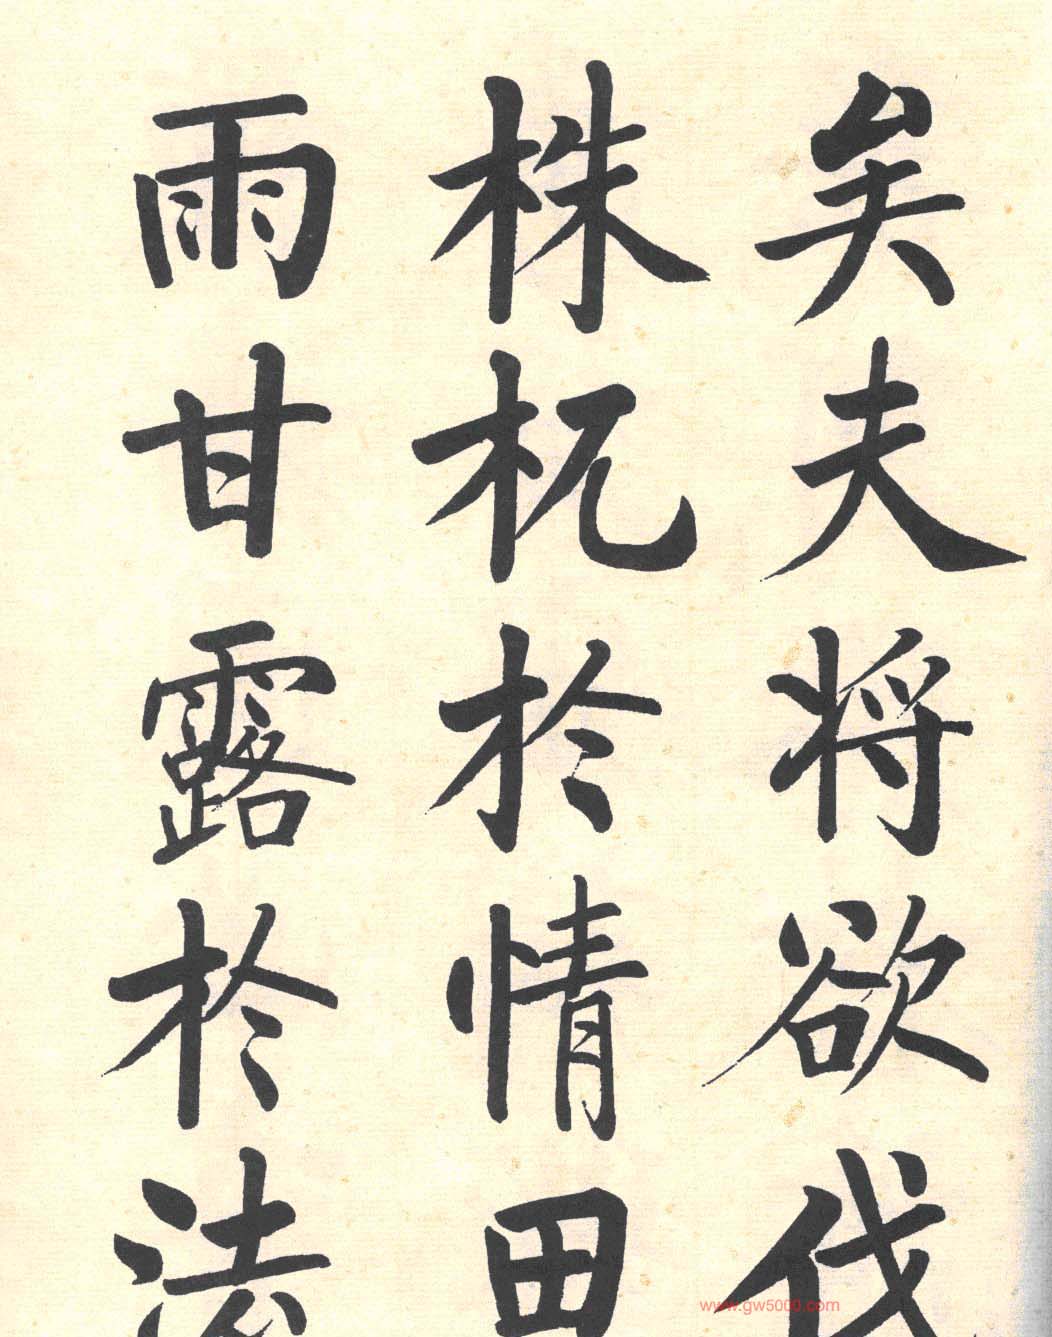 矣夫将欲伐
株杌於情田
雨甘露於法
www.gw5000.com